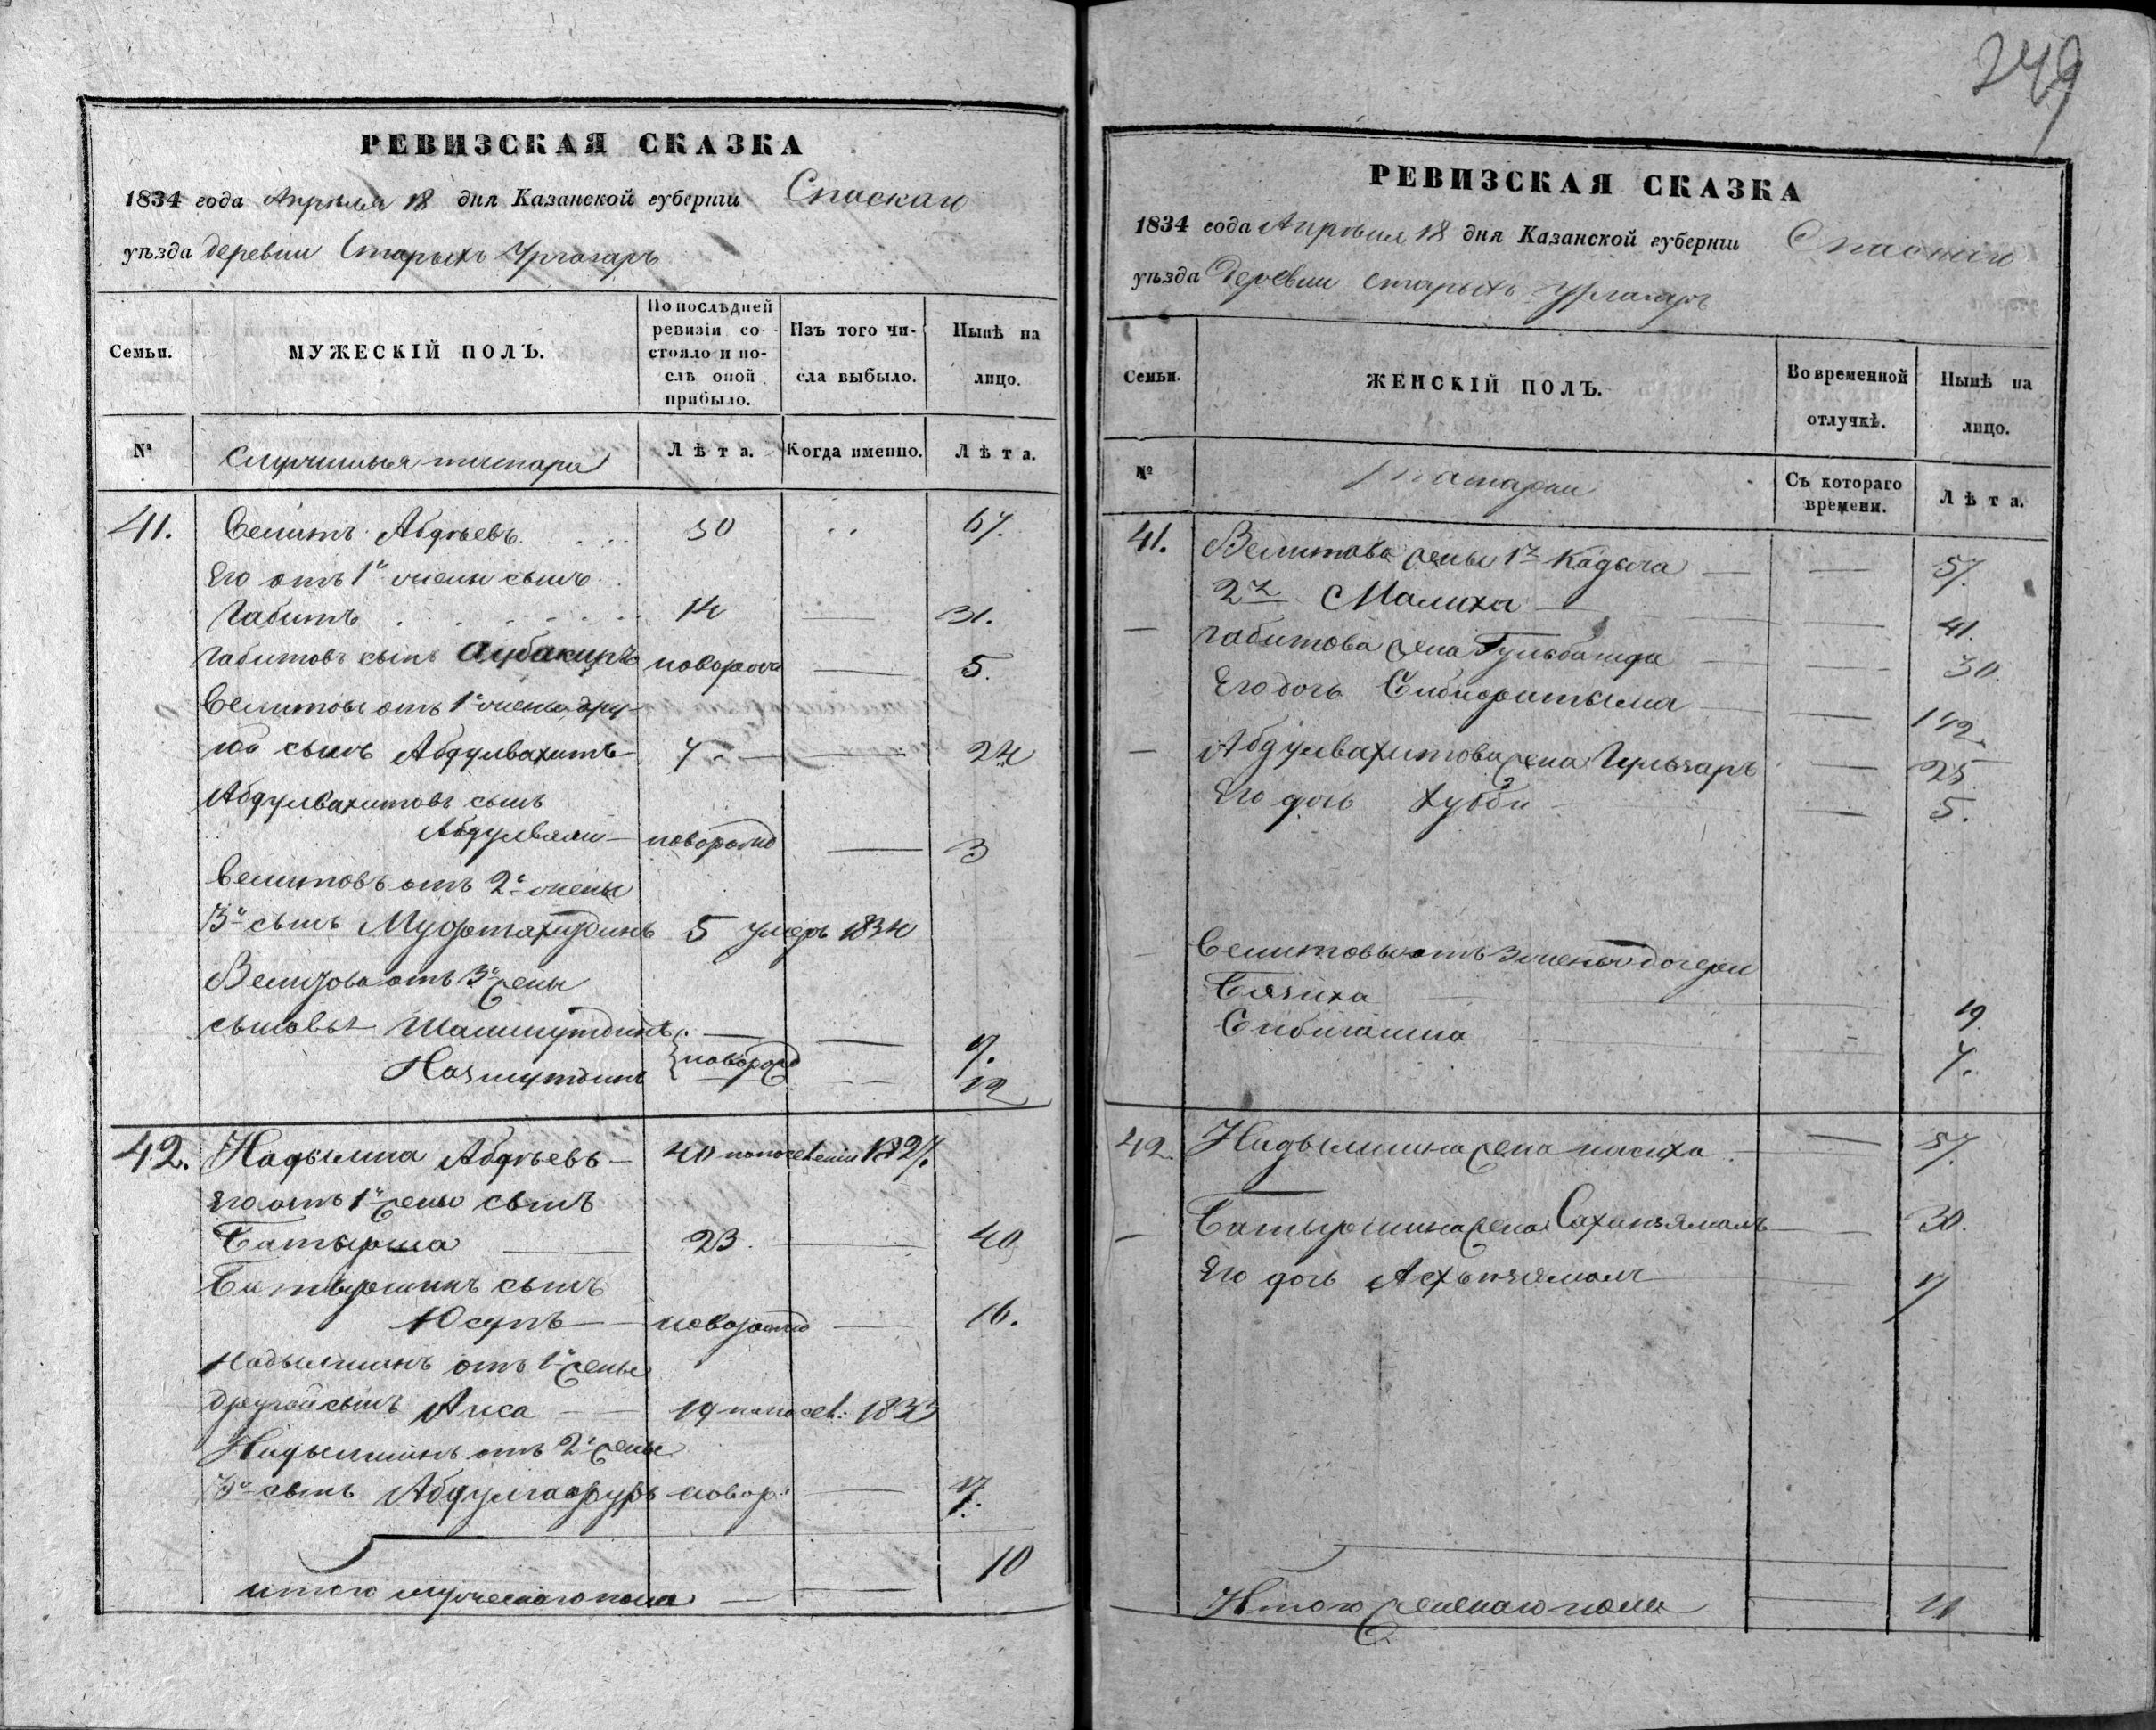 РЕВИЗСКАЯ СКАЗКА
1834 года Апреля 18 дня Казанской губерніи Спаскаго
уѣзда деревни Старыхъ
Семьи.
МУЖЕСКІЙ ПОЛЪ.
По послѣдней ревизіи состояло и послѣ оной прибыло.
Изъ того числа выбыло.
Нынѣ на лицо.
№
татара
Лѣта.
Когда именно.
Лѣта.
41. Велитъ Абдѣевъ 50 67.
Его отъ 1й жены сынъ
Габитъ 14 31.
Габитовъ сынъ Аубакиръ новорожд 5.
Велитовъ отъ 1й жены дру-
гой сынъ Абдулвахитъ 7 24
Абдулвахитовъ сынъ
Абдулвали новорожд 3
Велитовъ отъ 2й жены
3й сынъ Муфтахутдинъ 5 умеръ 1834
Велитова отъ 3й жены
сыновья Шамшутдинъ 7.
Назмутдинъ новорожд 12
42. Надырша Абдѣевъ 40 1827.
Его отъ 1й жены сынъ
Батырша 23 40
Батыршинъ сынъ
Юсупъ новорожд 16.
Надыршинъ отъ 1й жены
другой сынъ Аиса 19 1833
Надыршинъ отъ 2й жены
3й сынъ Абдулгафуръ новор. 7.
итого мужескаго пола 10
249
РЕВИЗСКАЯ СКАЗКА
1834 года Апрѣля 18 дня Казанской губерніи Спаскаго
уѣзда деревни Старыхъ
Семьи.
ЖЕНСКІЙ ПОЛЪ.
Во временной отлучкѣ.
Нынѣ на лицо.
№
татарки
Съ котораго времени.
Лѣта.
41. Велитова жены 1я Кадыча 57.
2я Малиха 41.
Габитова жена Гульбашда 30.
Его дочь 14
Абдулвахитова жена Гульчаръ 25
Его дочь Хубби 5.
Велитовы отъ 3 жены дочери
Бязиха 19
Бибигайша 7.
42. Надыршина жена 57.
Батыршина жена 30.
Его дочь 7
Итого женскаго пола 11